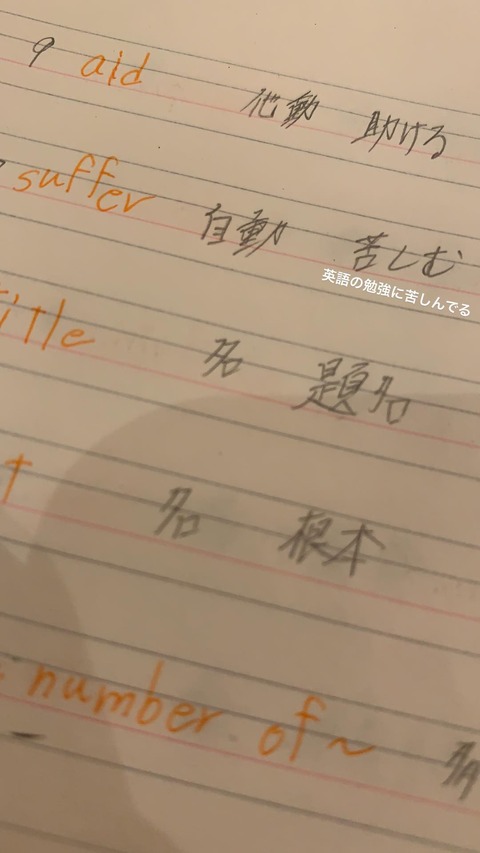 9 aid 他動 助ける
suffer 自動 苦しむ
英語の勉強に苦しんでる
title 名 題名
t 名 根本
number of ~ 多